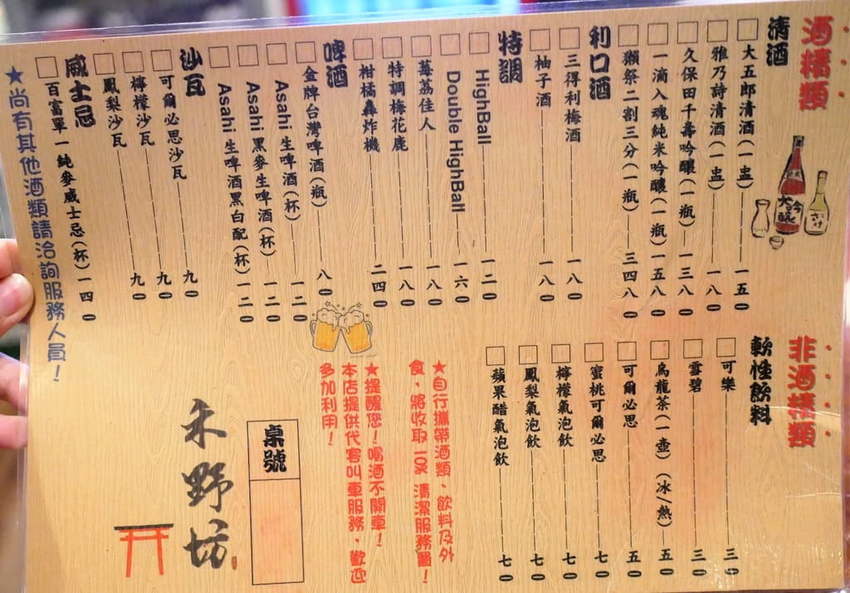 酒精類
清酒
大五郎清酒(一盅) 一五0
雅乃詩清酒(一盅) 一八0
久保田千壽吟釀(一瓶) 一三八0
一滴入魂純米吟釀(一瓶) 一五八0
獺祭二割三分(一瓶) 三四八0
利口酒
三得利梅酒 一八0
柚子酒 一八0
特調
HighBall 一二0
Double HighBall 一六0
莓荔佳人 一八0
特調梅花鹿 一八0
柑橘轟炸機 二四0
啤酒
金牌台灣啤酒(瓶) 八0
Asahi 生啤酒(杯) 一二0
Asahi 黑麥生啤酒(杯) 一二0
Asahi 生啤酒黑白配(杯) 一二0
沙瓦
可爾必思沙瓦 九0
檸檬沙瓦 九0
鳳梨沙瓦 九0
威士忌
百富單一純麥威士忌(杯) 一四0
★尚有其他酒類請洽詢服務人員!
非酒精類
軟性飲料
可樂 三0
雪碧 三0
烏龍茶(一壺)(冰/熱) 五0
可爾必思 五0
蜜桃可爾必思 七0
檸檬氣泡飲 七0
鳳梨氣泡飲 七0
蘋果醋氣泡飲 七0
★自行攜帶酒類、飲料及外
食，將收取一0%清潔服務費!
★提醒您!喝酒不開車!
本店提供代客叫車服務，歡迎
多加利用!
桌號
禾野坊